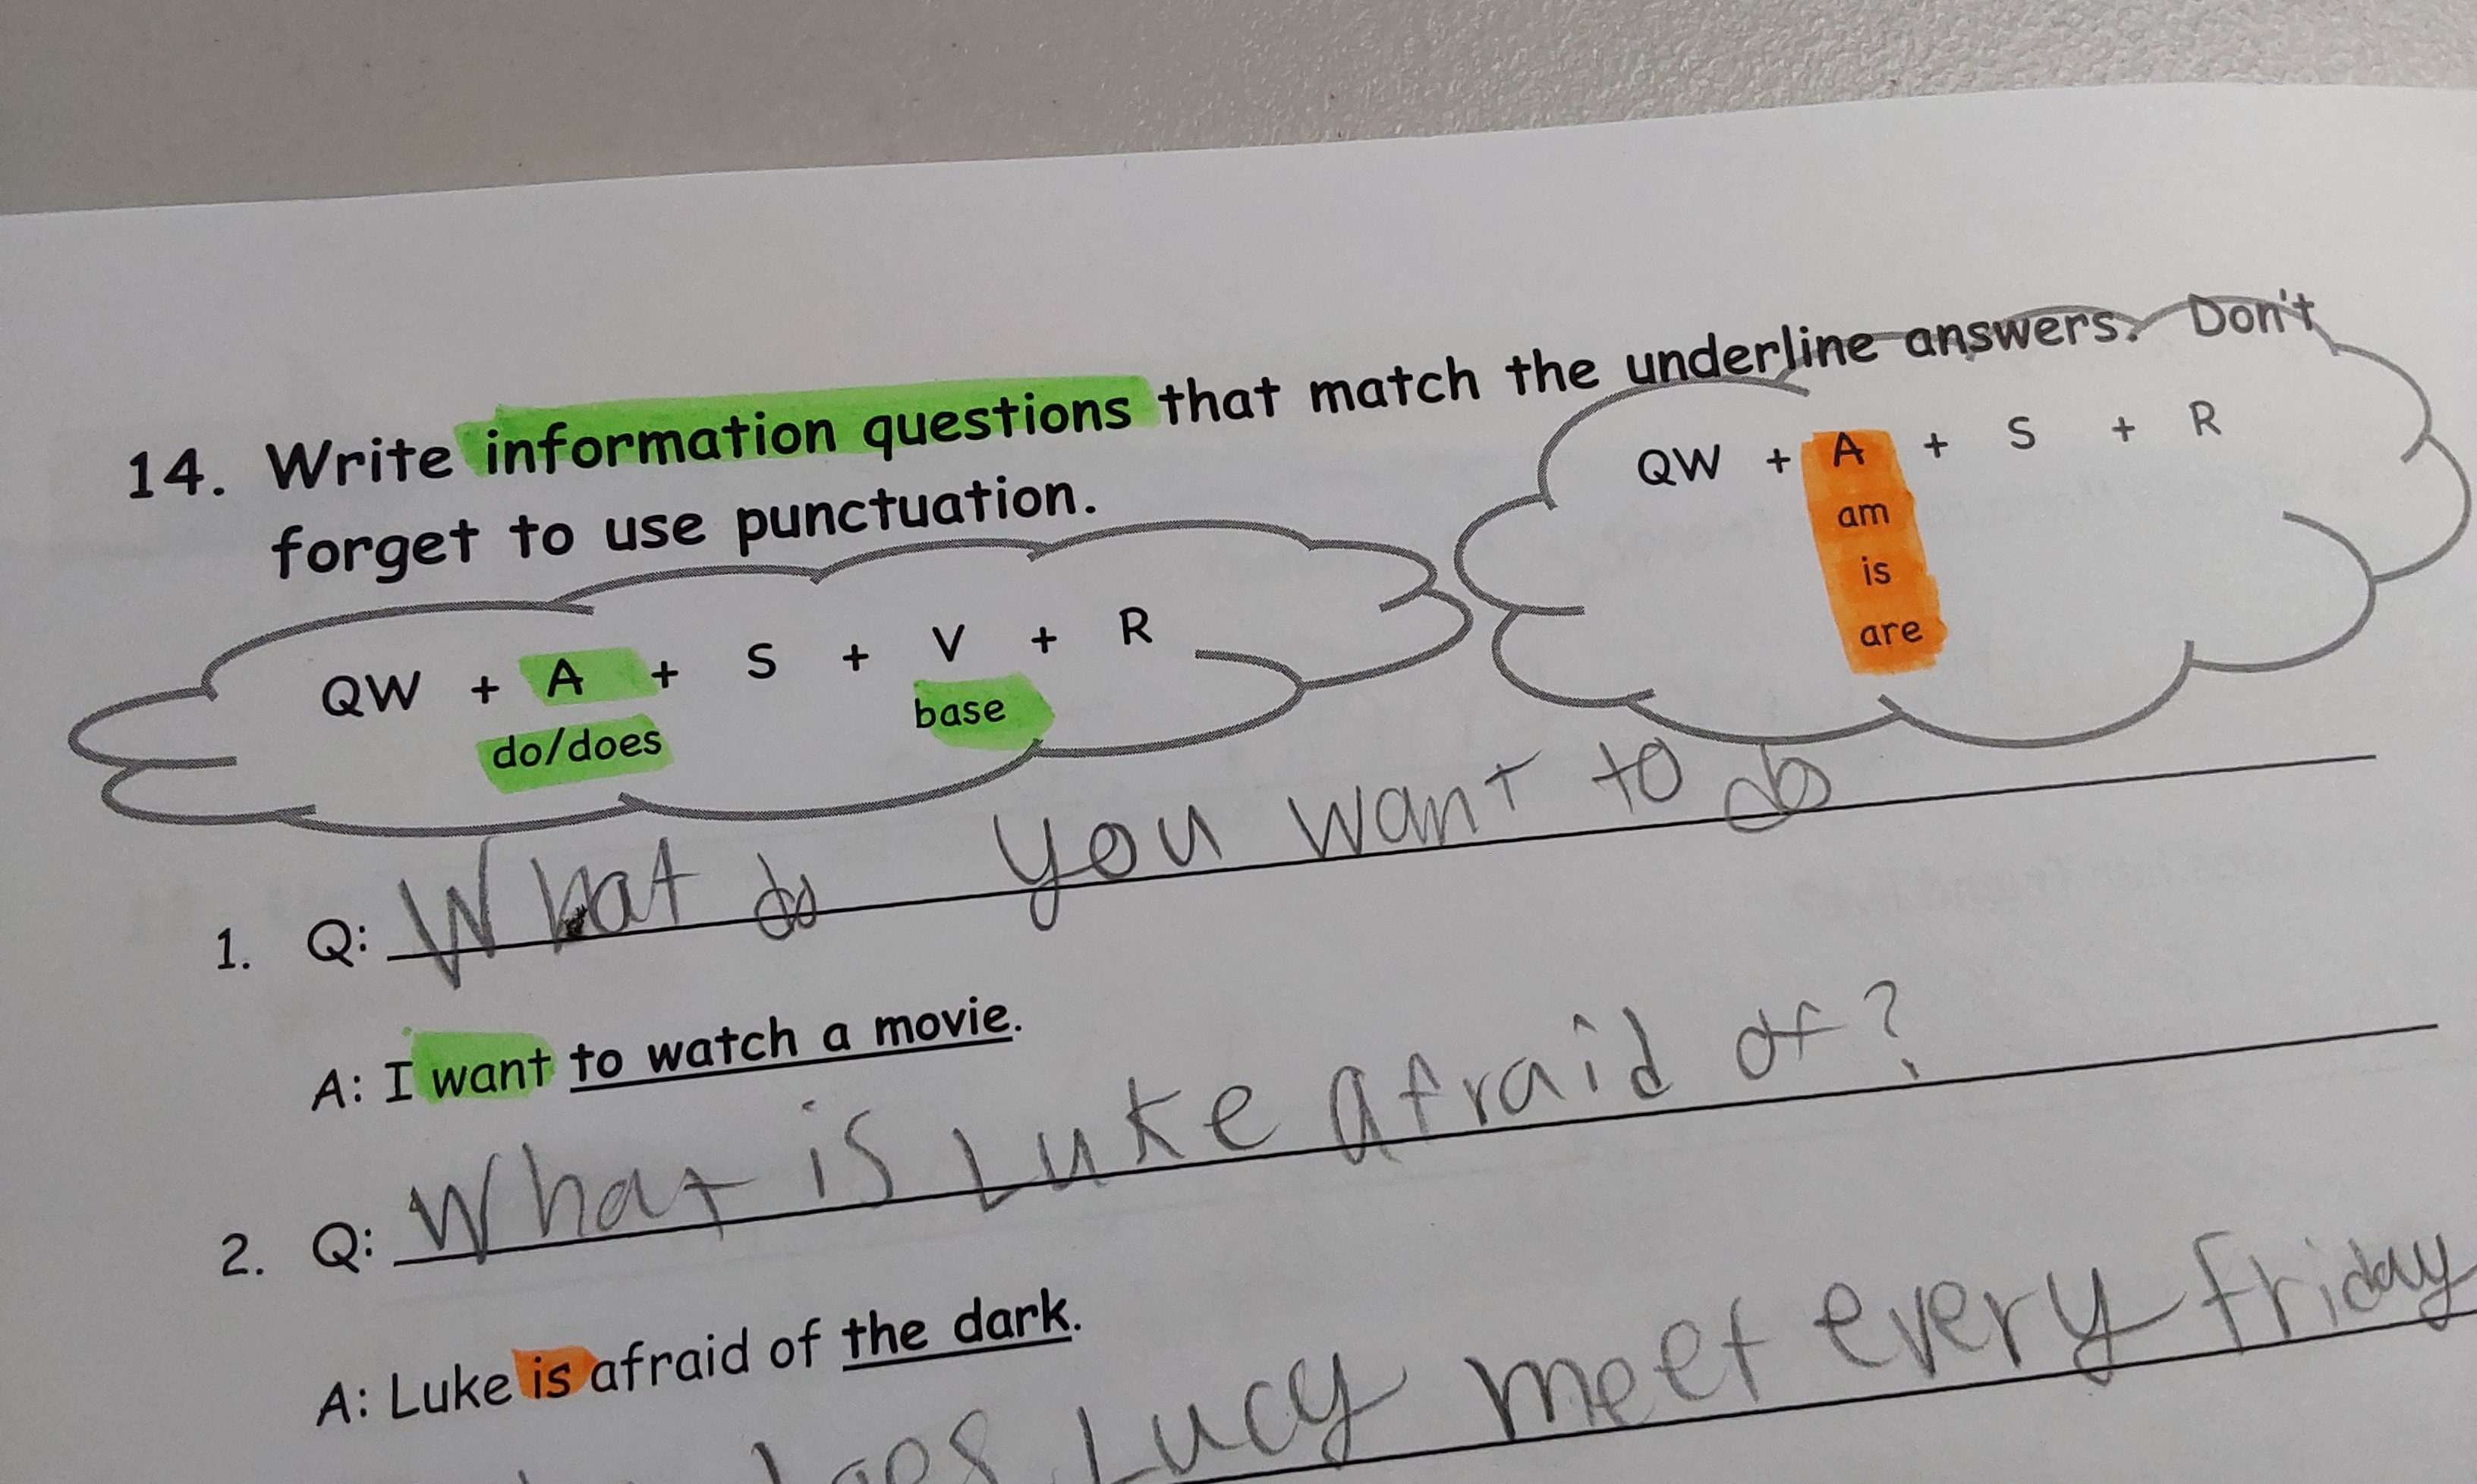 14. Write information questions that match the underline answers. Don't
forget to use punctuation.
QW + A + S + R
am
is
are
QW + A + S + V + R
do/does base
1. Q: What do you want to do
A: I want to watch a movie.
2. Q: What is Luke afraid of?
A: Luke is afraid of the dark.
does Lucy meet every friday